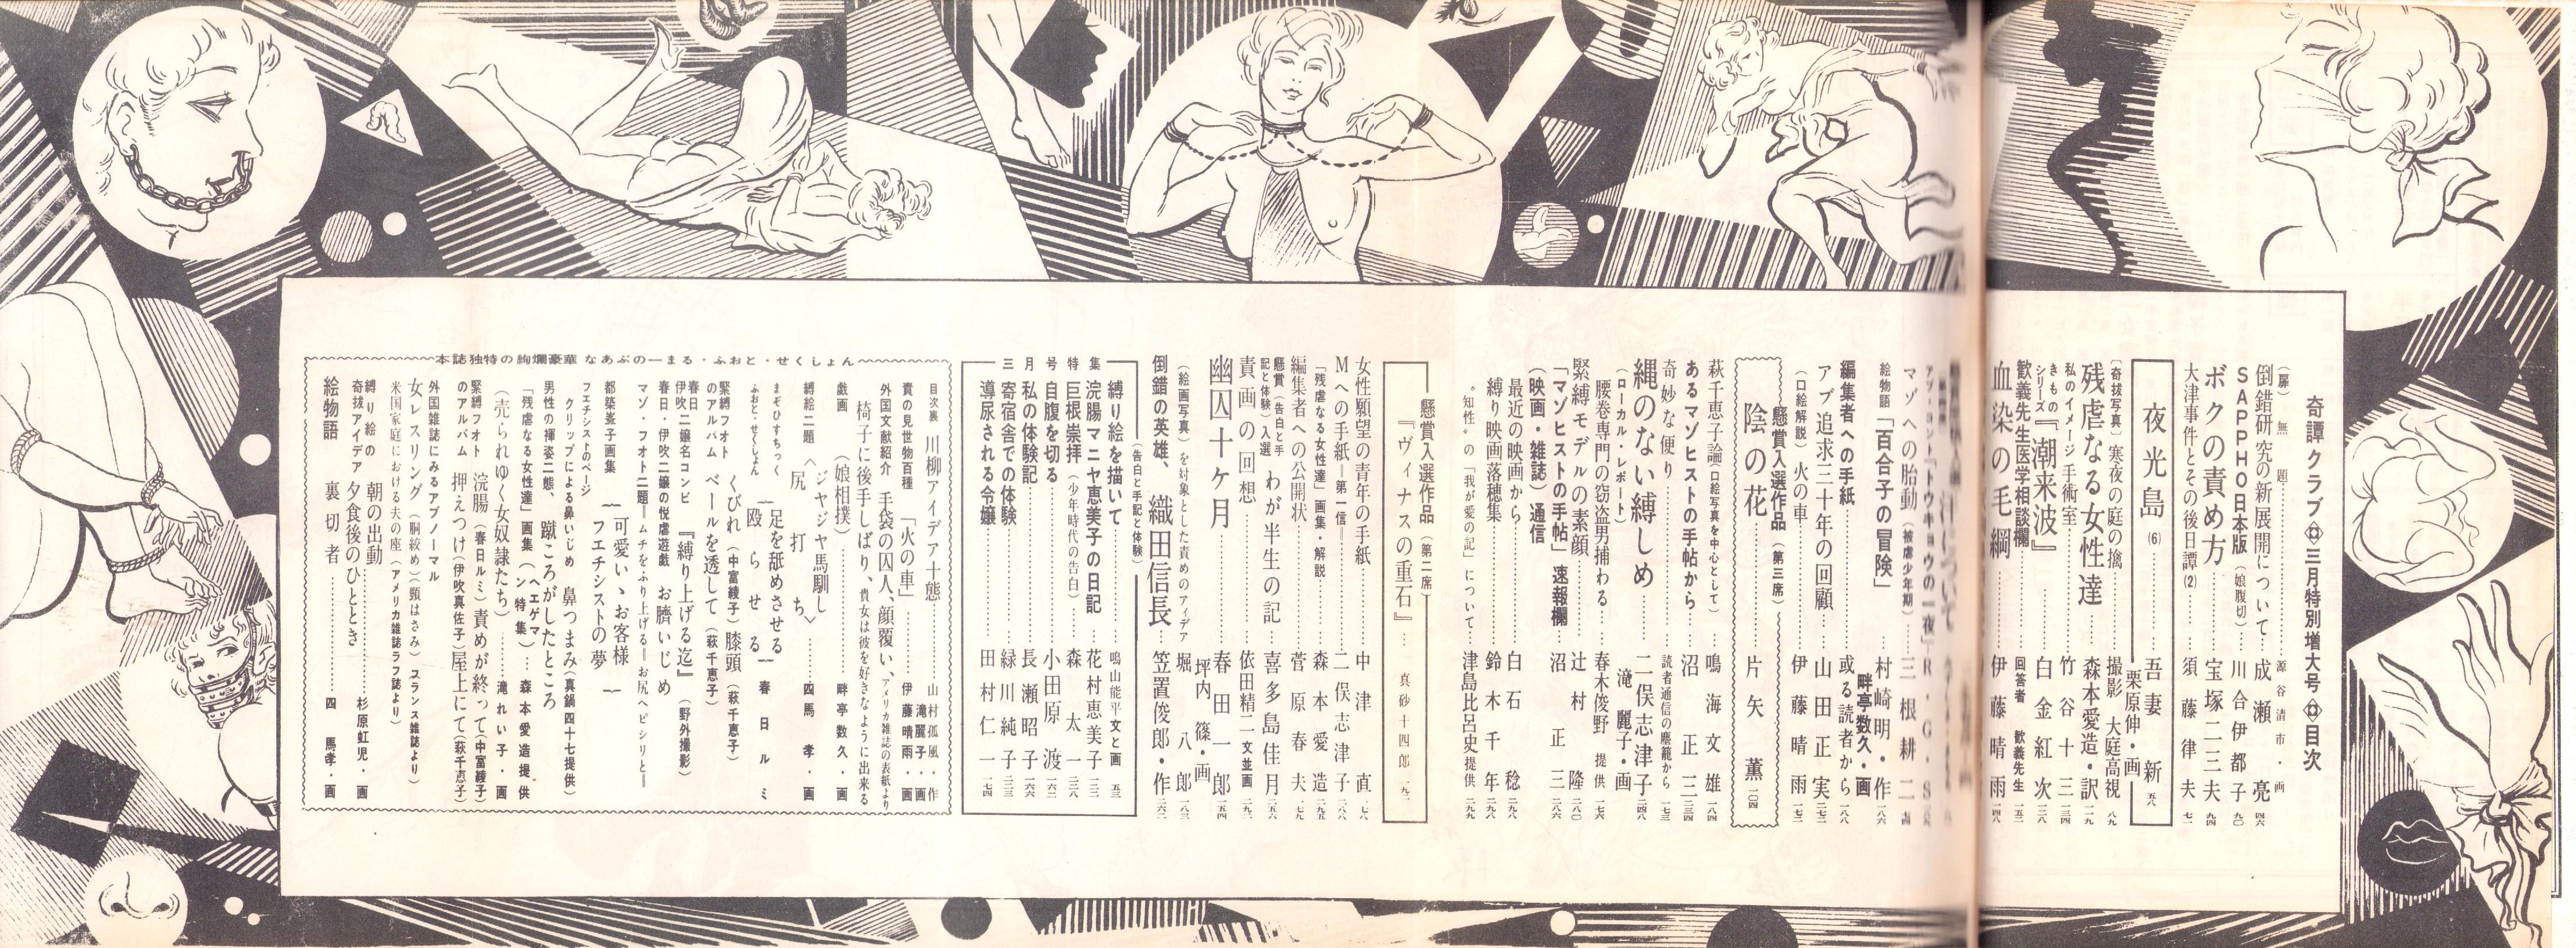 奇譚クラブ 三月特別増大号 目次
(扉) 無題……源谷清市・画
倒錯研究の新展開について…成瀬亮 四六
SAPPHO日本版(娘腹切)…川合伊都子 九〇
ボクの責め方……宝塚二三夫 九四
大津事件とその後日譚(2)……須藤律夫 七一
夜光島(6)……吾妻新 五八
栗原伸・画
〔奇抜写真〕寒夜の庭の擒……撮影 大庭高視 八九
残虐なる女性達……森本愛造・訳 二一九
私のイメージ 手術室……竹谷十三 一三四
きもの シリーズ『潮来波』……白金紅次 三八
歓義先生医学相談欄……回答者 歓義先生 一五二
血染の毛綱……伊藤晴雨 一四八
マゾへの胎動(被虐少年期)……三根耕二
絵物語「百合子の冒険」……村崎明・作 一八六
畔亭数久・画
編集者への手紙……或る読者から 一八八
アブ追求三十年の回顧……山田正実 一七二
(口絵解説)火の車……伊藤晴雨 一七二
懸賞入選作品(第三席)
陰の花……片矢薫 一〇四
萩千恵子論(口絵写真を中心として)…鳴海文雄 一八四
あるマゾヒストの手帖から…沼正三 二三四
奇妙な便り……読者通信の塵籠から 一七三
縄のない縛しめ……二俣志津子 二四八
(ローカル・レポート) 滝麗子・画
腰巻専門の窃盗男捕わる…春木俊野 提供 一七六
緊縛モデルの素顔……辻村隆 二八〇
「マゾヒストの手帖」速報欄 沼正三 二六六
(映画・雑誌)通信
最近の映画から……白石稔 二九八
縛り映画落穂集……鈴木千年 二九八
〝知性〟の「我が愛の記」について……津島比呂史提供 二九九
懸賞入選作品(第二席)
『ヴィナスの重石』…真砂十四郎 一九二
女性願望の青年の手紙……中津直 一七八
Mへの手紙=第一信=……二俣志津子 一八八
「残虐なる女性達」画集・解説……森本愛造 二九五
編集者への公開状……菅原春夫 一七九
懸賞(告白と手記と体験)入選 わが半生の記……喜多島佳月 二五六
責画の回想……依田精二 文並画 二九二
幽囚十ケ月……春田一郎 一五四
坪内篠・画
(絵画写真)を対象とした責めのアイデア…堀八郎 一八三
倒錯の英雄、織田信長…笠置俊郎・作 二六二
三月号特集
(告白と手記と体験)
縛り絵を描いて……鳴山能平 文と画 五三
浣腸マニヤ恵美子の日記…花村恵美子 二三二
巨根崇拝(少年時代の告白)…森太一 二三八
自腹を切る……小田原渡 一六二
私の体験記……長瀬昭子 一六六
寄宿舎での体験……緑川純子 二三三
導尿される令嬢……田村仁一 一七四
本誌独特の絢爛豪華 なあぶのーまる・ふおと・せくしょん
目次裏 川柳アイデア十態……山村孤風・作
滝麗子・画
責の見世物百種「火の車」……伊藤晴雨・画
外国文献紹介 手袋の囚人、顔覆い、アメリカ雑誌の表紙より
椅子に後手しばり、貴女は彼を好きなように出来る
戯画(娘相撲)……畔亭数久・画
縛絵二題〈ジャジャ馬馴し
尻打ち〉……四馬孝・画
まぞひすちっく ふおと・せくしょん
足を舐めさせる
殴らせる 春日ルミ
くびれ(中富綾子)膝頭(萩千恵子)
緊縛フオトのアルバム ベールを透して(萩千恵子)
春日伊吹二嬢名コンビ『縛り上げる迄』(野外撮影)
春日・伊吹二嬢の悦虐遊戯 お臍いじめ
マゾ・フオト二題=ムチをふり上げる=お尻へピシリと=
都築峯子画集 可愛いゝお客様
フエチシストの夢
フエチシストのページ
クリップによる鼻いじめ 鼻つまみ(真鍋四十七提供)
男性の褌姿二態、蹴ころがしたところ
「残虐なる女性達」画集(ヘエゲマン特集)森本愛造提供
(売られゆく女奴隷たち)……滝れい子・画
緊縛フオトのアルバム 浣腸(春日ルミ)責めが終って(中富綾子)
押えつけ(伊吹真佐子)屋上にて(萩千恵子)
外国雑誌にみるアブノーマル
女レスリング(胴絞め)(頸はさみ)フランス雑誌より)
米国家庭における夫の座(アメリカ雑誌ラフ誌より)
縛り絵の奇抜アイデア 朝の出勤
夕食後のひととき……杉原虹児・画
絵物語 裏切者……四馬孝・画